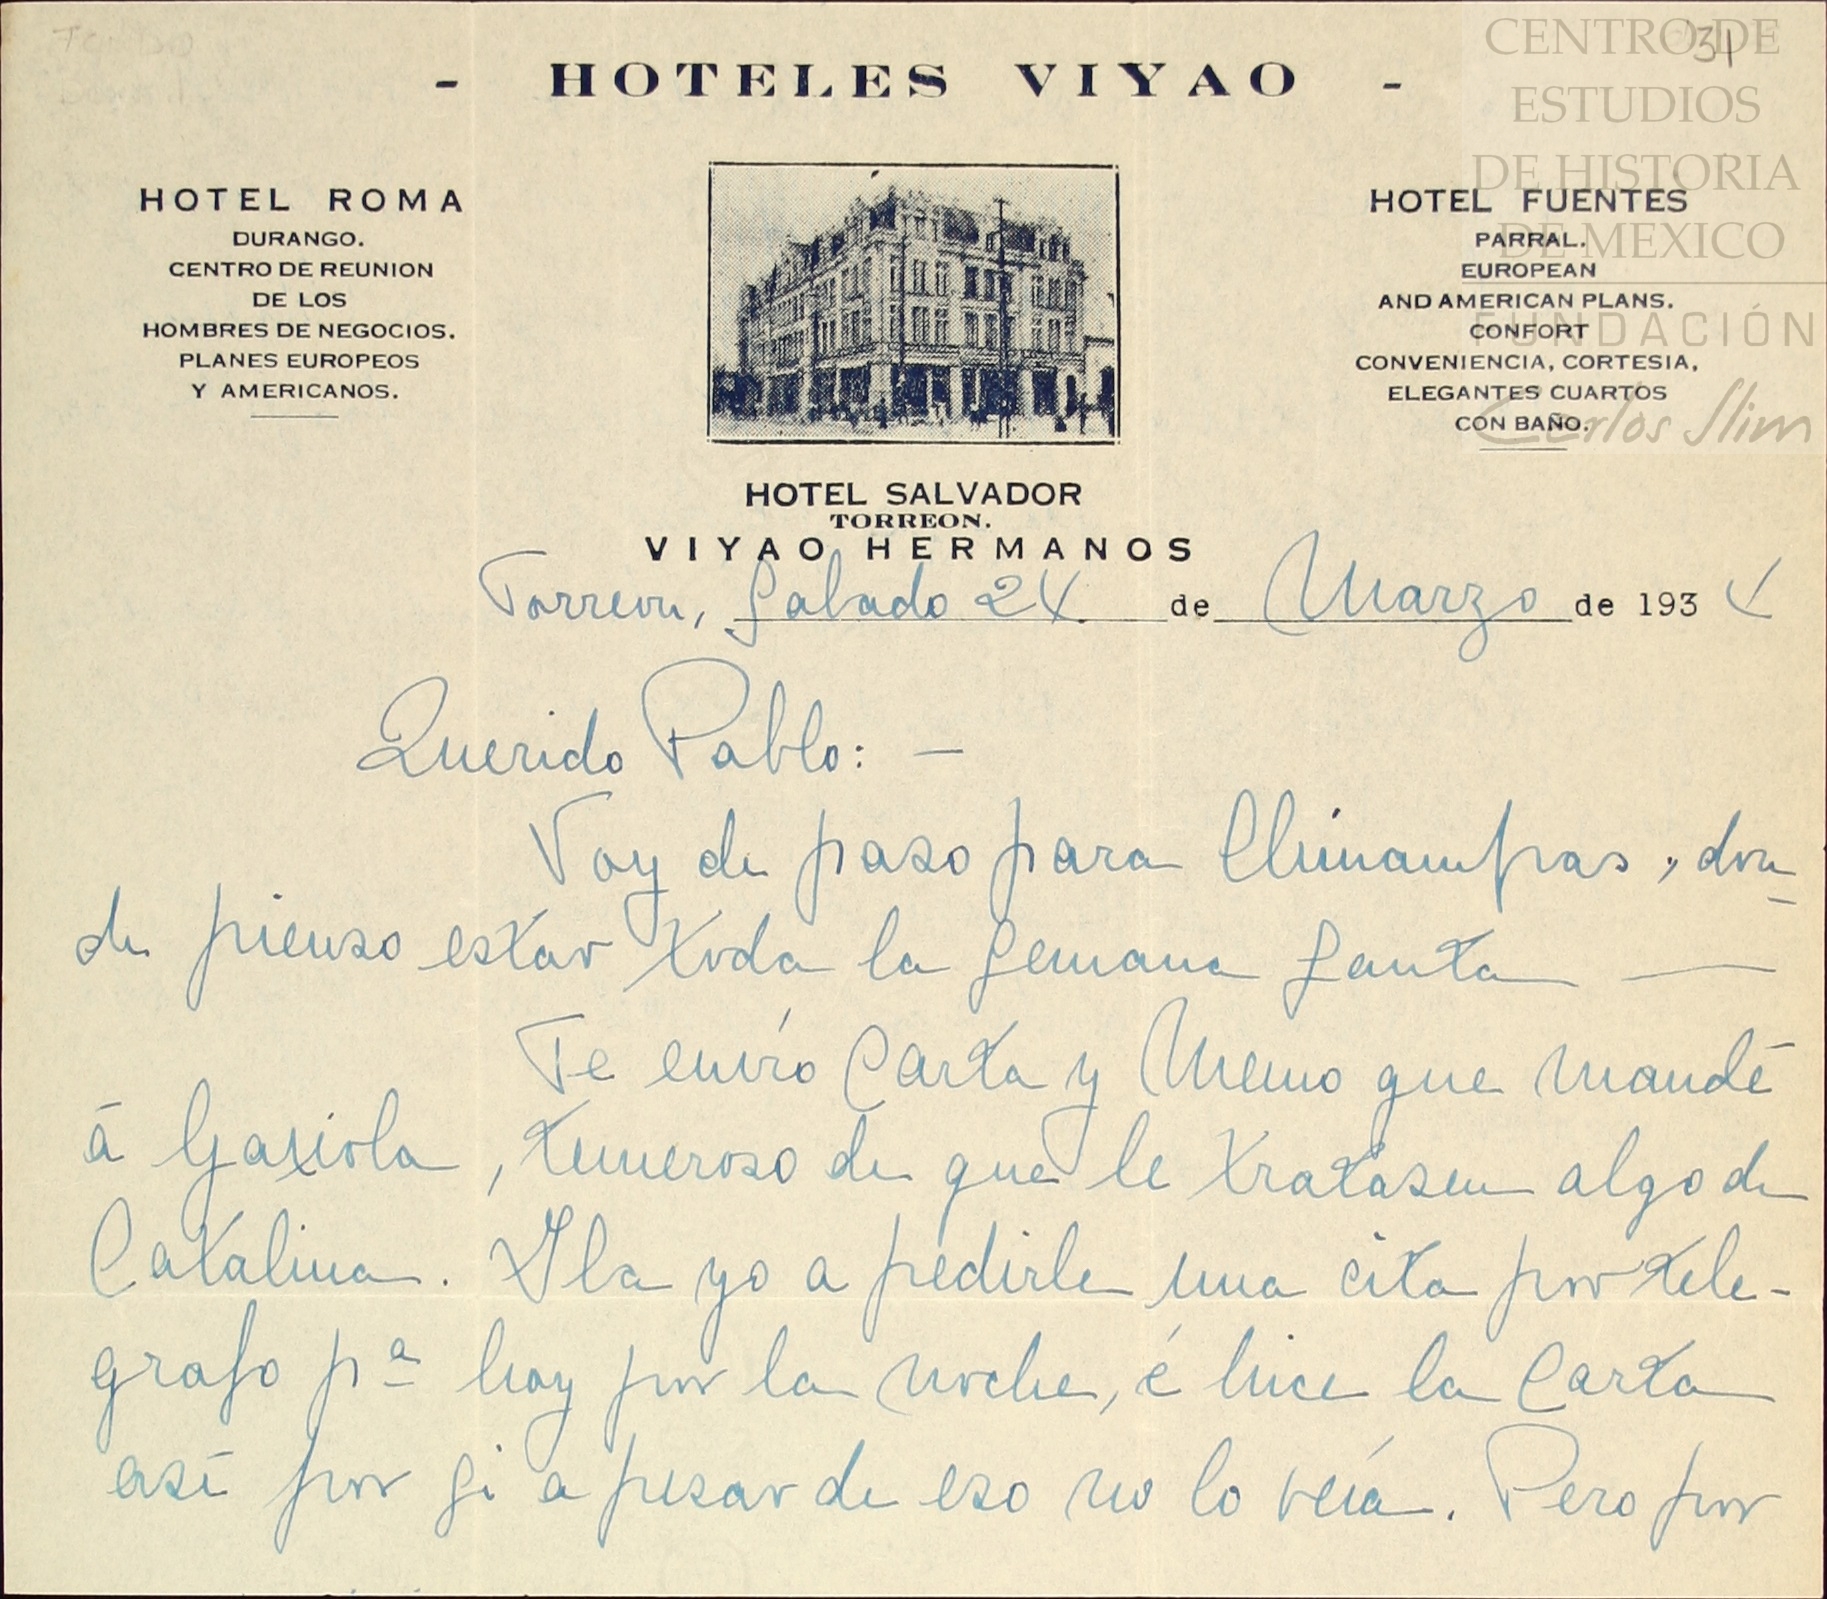 - HOTELES VIYAO -
31
CENTRO DE
ESTUDIOS
DE HISTORIA
DE MEXICO
FUNDACIÓN
Carlos Slim
HOTEL ROMA
DURANGO.
CENTRO DE REUNION
DE LOS
HOMBRES DE NEGOCIOS.
PLANES EUROPEOS
Y AMERICANOS.
HOTEL FUENTES
PARRAL.
EUROPEAN
AND AMERICAN PLANS.
CONFORT
CONVENIENCIA, CORTESIA,
ELEGANTES CUARTOS
CON BAÑO.
HOTEL SALVADOR
TORREON.
VIYAO HERMANOS
Torreon, Sabado 24 de Marzo de 1934
Querido Pablo: —
Voy de paso para Chinampas, don-
de pienso estar toda la Semana Santa —
Te envío Carta y Memo que mandé
á Gaxiola, temeroso de que le tratasen algo de
Catalina. Iba yo a pedirle una cita por tele-
grafo pª hoy por la noche, é hice la Carta
así por si a pesar de eso no lo veía. Pero por